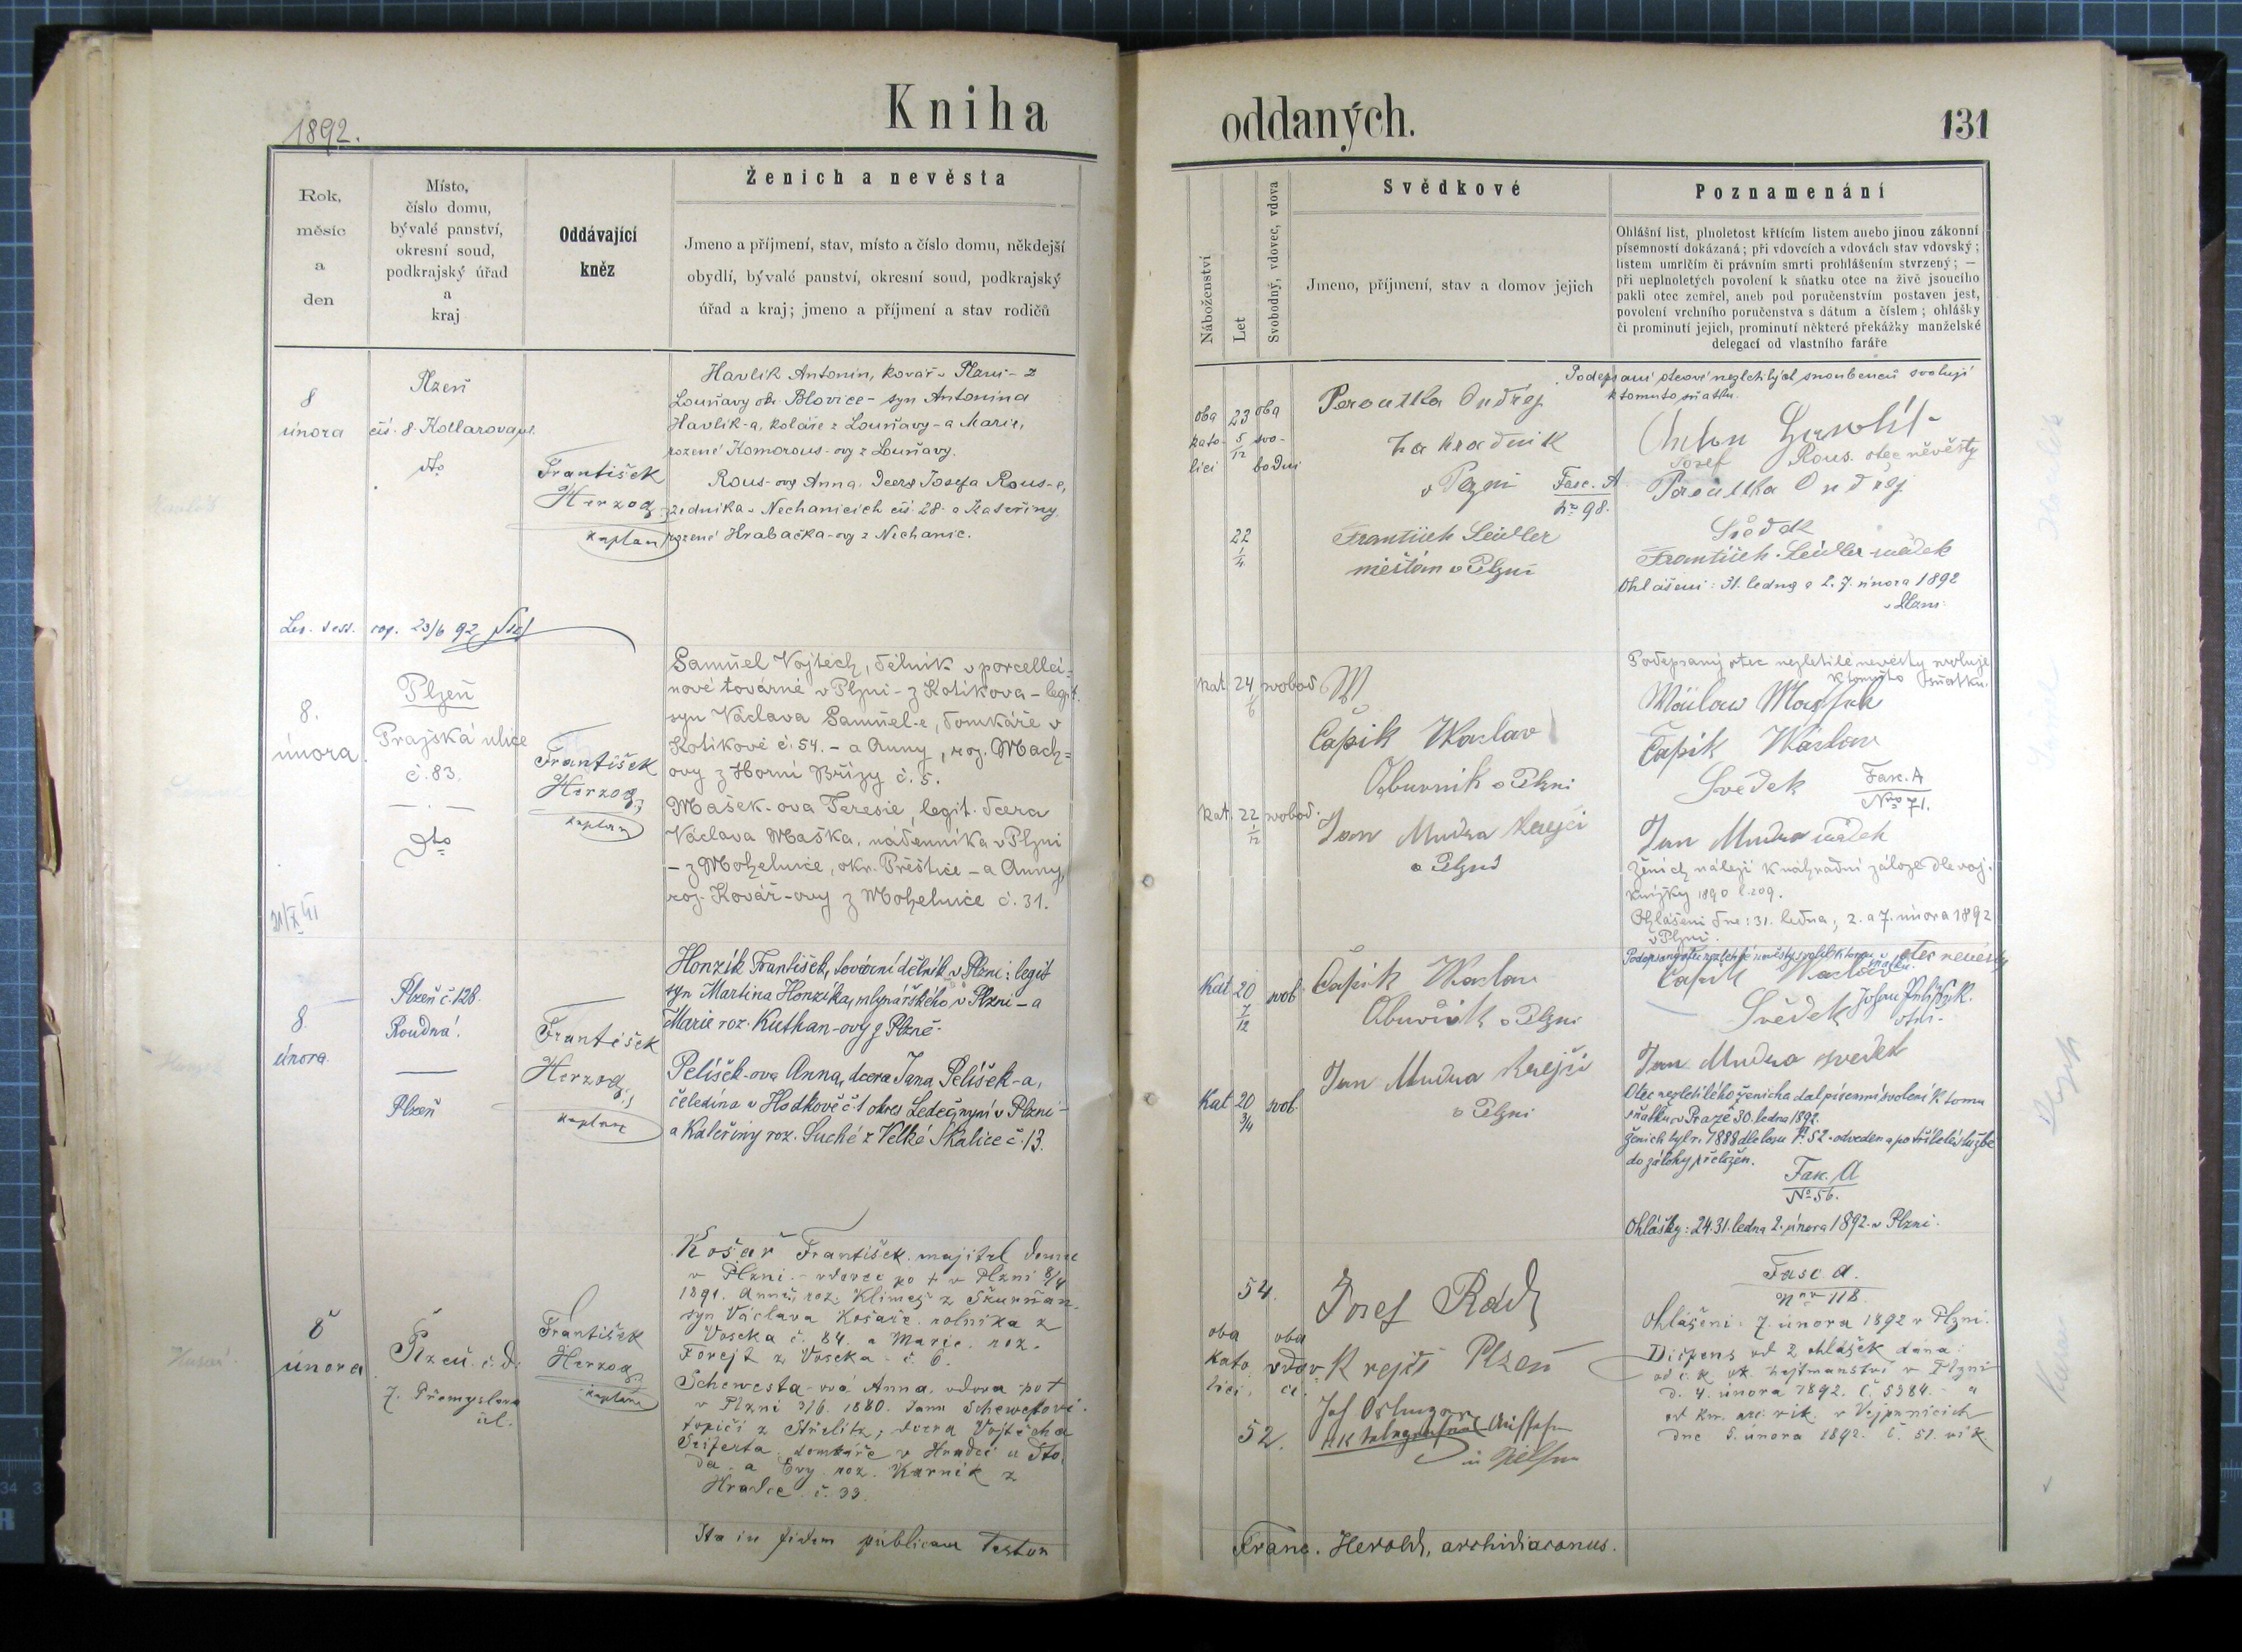 Kniha
1892.
Rok,
měsíc
a
den
Místo,
číslo domu,
bývalé panství,
okresní soud,
podkrajský úřad
a
kraj
Oddávající
kněz
Ženich a nevěsta
Jmeno a příjmení, stav, místo a číslo domu, někdejší
obydlí, bývalé panství, okresní soud, podkrajský
úřad a kraj; jmeno a příjmení a stav rodičů
8
února
Plzeň
čís. 8. Kollarova ul.
dto
František
Herzog,
kaplan
Havlík Antonín, kovář v Plzni - z
Louňavy okr. Blovice - syn Antonína
Havlík-a, koláře z Louňavy - a Marie,
rozené Komorous-ovy z Louňavy.
Rous-ova Anna, dcera Josefa Rous-e,
zedníka v Nechanicích čís. 28. a Kateřiny
rozené Hrabačka-ovy z Nechanic.
23/6 92
8.
února
Plzeň
Pražská ulice
č. 83.
dto
František
Herzog,
kaplan
Samuel Vojtěch, dělník v porcellei-
nové továrně v Plzni - z Kotikova - legit.
syn Václava Samuel-e, domkáře v
Kotikově č. 54. - a Anny, roz. Mach-
ovy z Horní Břízy č. 5.
Mašek-ova Teresie, legit. dcera
Václava Maška, nádenníka v Plzni
- z Mohelnice, okr. Přeštice - a Anny,
roz. Kovář-ovy z Mohelnice č. 31.
8
února
Plzeň č. 128.
Roudná.
Plzeň
František
Herzog,
kaplan
Honzík František, tovární dělník v Plzni: legit
syn Martina Honzíka, mlynářského v Plzni - a
Marie roz. Kuthan-ovy z Plzně.
Pelíšek-ova Anna, dcera Jana Pelíšek-a,
čeledína v Hodkově č. 1 okres Ledeč, nyní v Plzni -
a Kateřiny roz. Suché z Velké Skalice č. 13.
8
února
Plzeň. č. d.
7. Přemyslova
ul.
František
Herzog,
kaplan
Košař František. majitel domu
v Plzni. - vdovec po † v Plzni 8/4
1891. Anně, roz. Klimeš z Skurňan.
syn Václava Košaře. rolníka z
Voseka č. 84. a Marie. roz.
Forejt z Voseka č. 6.
Schewesta-ová Anna. vdova po †
v Plzni 3/6. 1880. Janu Schewestovi.
topiči z Střelitz; dcera Vojtěcha
Seiferta. domkáře v Hradci u Sto-
da. a Evy. roz. Karník z
Hradce. č. 33.
Ita in fidem publicam testor
oddaných.
131
Náboženství
Let
Svobodný, vdovec, vdova
Svědkové
Jmeno, příjmení, stav a domov jejich
Poznamenání
Ohlášní list, plnoletost křticím listem anebo jinou zákonní
písemností dokázaná; při vdovcích a vdovách stav vdovský;
listem umrlčím či právním smrti prohlášením stvrzený; —
při neplnoletých povolení k sňatku otce na živě jsoucího
pakli otec zemřel, aneb pod poručenstvím postaven jest,
povolení vrchního poručenstva s dátum a číslem; ohlášky
či prominutí jejich, prominutí některé překážky manželské
delegací od vlastního faráře
Podepsaní otcové nezletilých snoubenců svolují
k tomuto sňatku.
oba
kato-
lici
23
5/12
oba
svo-
bodni
Peroutka Ondřej
Zahradník
v Plzni
Fasc. A
No 98.
22
František Seidler
měšťan v Plzni
Anton Havlík
Josef Rous. otec nevěsty
Peroutka Ondřej
Svědek
František Seidler svědek
Ohlášeni: 31. ledna a 2. 7. února 1892
v Plzni.
kat. 24 svobod.
Čapík Waclav
Obuvník v Plzni
kat. 22 1/12 svobod.
Jan Mudra krejčí
v Plzni
Podepsaný otec nezletilé nevěsty svoluje
k tomuto sňatku.
Čapík Wáclav
Svědek
Fasc. A
Nro 71.
Jan Mudra svědek
Ženich náleží k náhradní záloze dle voj.
knížky 1890 l. 209.
Ohlášeni dne: 31. ledna, 2. a 7. února 1892
v Plzni.
kat 20 7/12 svob.
Čapík Waclav
Obuvník v Plzni
Kat 20 3/4 svob.
Jan Mudra krejčí
v Plzni
otec nevěsty
Čapík Waclav
Svědek
Jan Mudra svedek
Otec nezletilého ženicha dal písemní svolení k tomu
sňatku v Praze 30. ledna 1892.
Ženich byl r. 1888 dle losu č. 52. odveden a po tříleté službě
do zálohy přeložen.
Fasc. A
No 56.
Ohlášky: 24. 31. ledna 2. února 1892. v Plzni.
oba
kato
lici,
54.
52.
oba
vdov
ci.
Josef Rádl
Krejčí Plzeň
in Pilsen
Fasc A.
Nro 118
Ohlášeni: 7. února 1892 v Plzni.
Dispens od 2 ohlášek dána:
od c. k. ok. hejtmanství v Plzni
d. 4. února 1892. č. 5384. - a
dne 5. února 1892. č. 51.
Franc. Herold, archidiaconus.